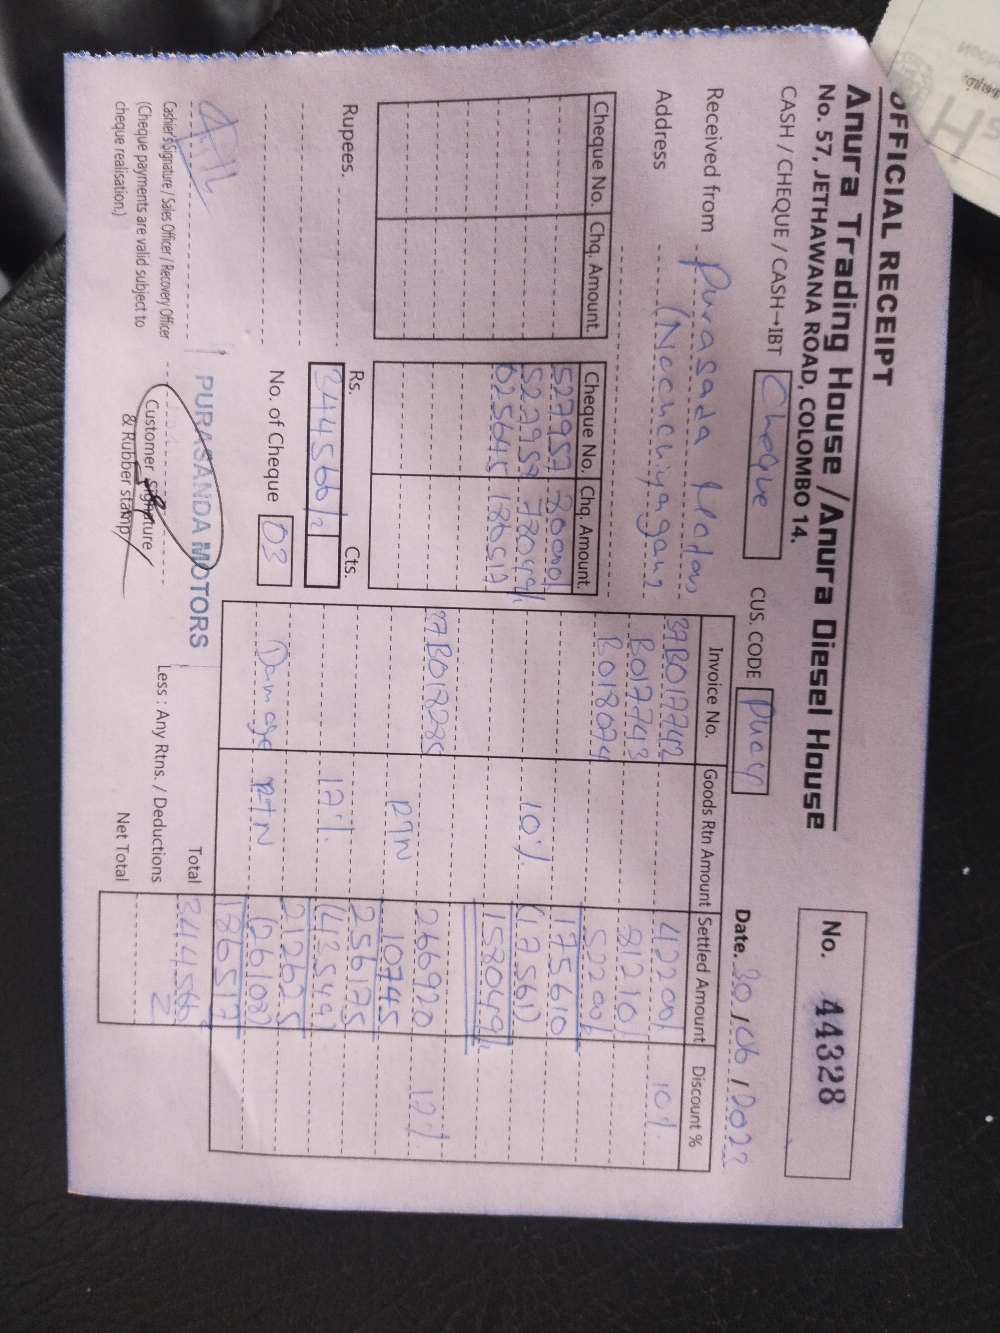 OFFICIAL RECEIPT
Anura Trading House / Anura Diesel House
No. 57, JETHAWANA ROAD, COLOMBO 14.
No. 44328
CASH / CHEQUE / CASH→IBT Cheque CUS. CODE
Date. 30/06/2022
Received from Purasada
Address
Cheque No. Chq. Amount.
Cheque No. Chq. Amount.
527957
025645 186517
Rupees.
Rs. Cts.
344566/
No. of Cheque 03
Invoice No. Goods Rtn Amount Settled Amount Discount %
37B017742 42200/ 10%
B017743 81210/
B018074 52200/
175610
10% (17561)
158049/
266920 12%
RTN 10745
256175
17% (43549)
212625
Damage RTN (26108)
186517
Total 344566
Less : Any Rtns. / Deductions
Net Total
Cashier's Signature / Sales Officer / Recovery Officer
(Cheque payments are valid subject to
cheque realisation.)
PURASANDA MOTORS
Customer signature
& Rubber stamp